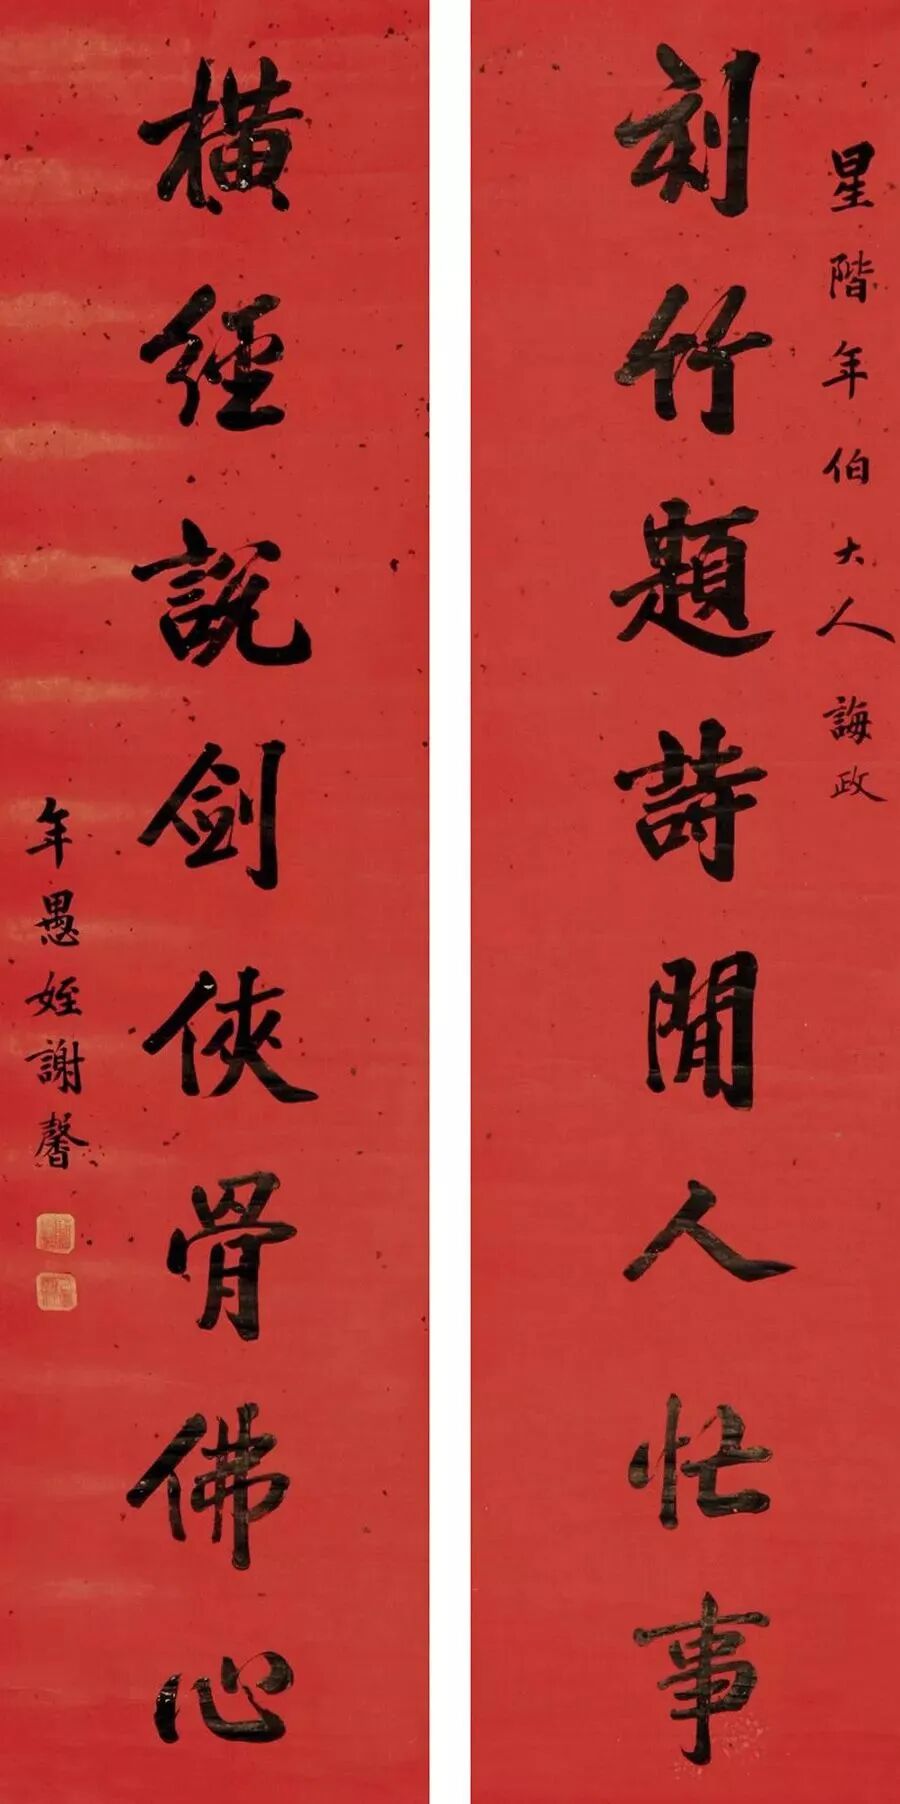 星階年伯大人誨政
刻竹題詩閒人忙事
橫經説劍俠骨佛心
年愚姪謝馨